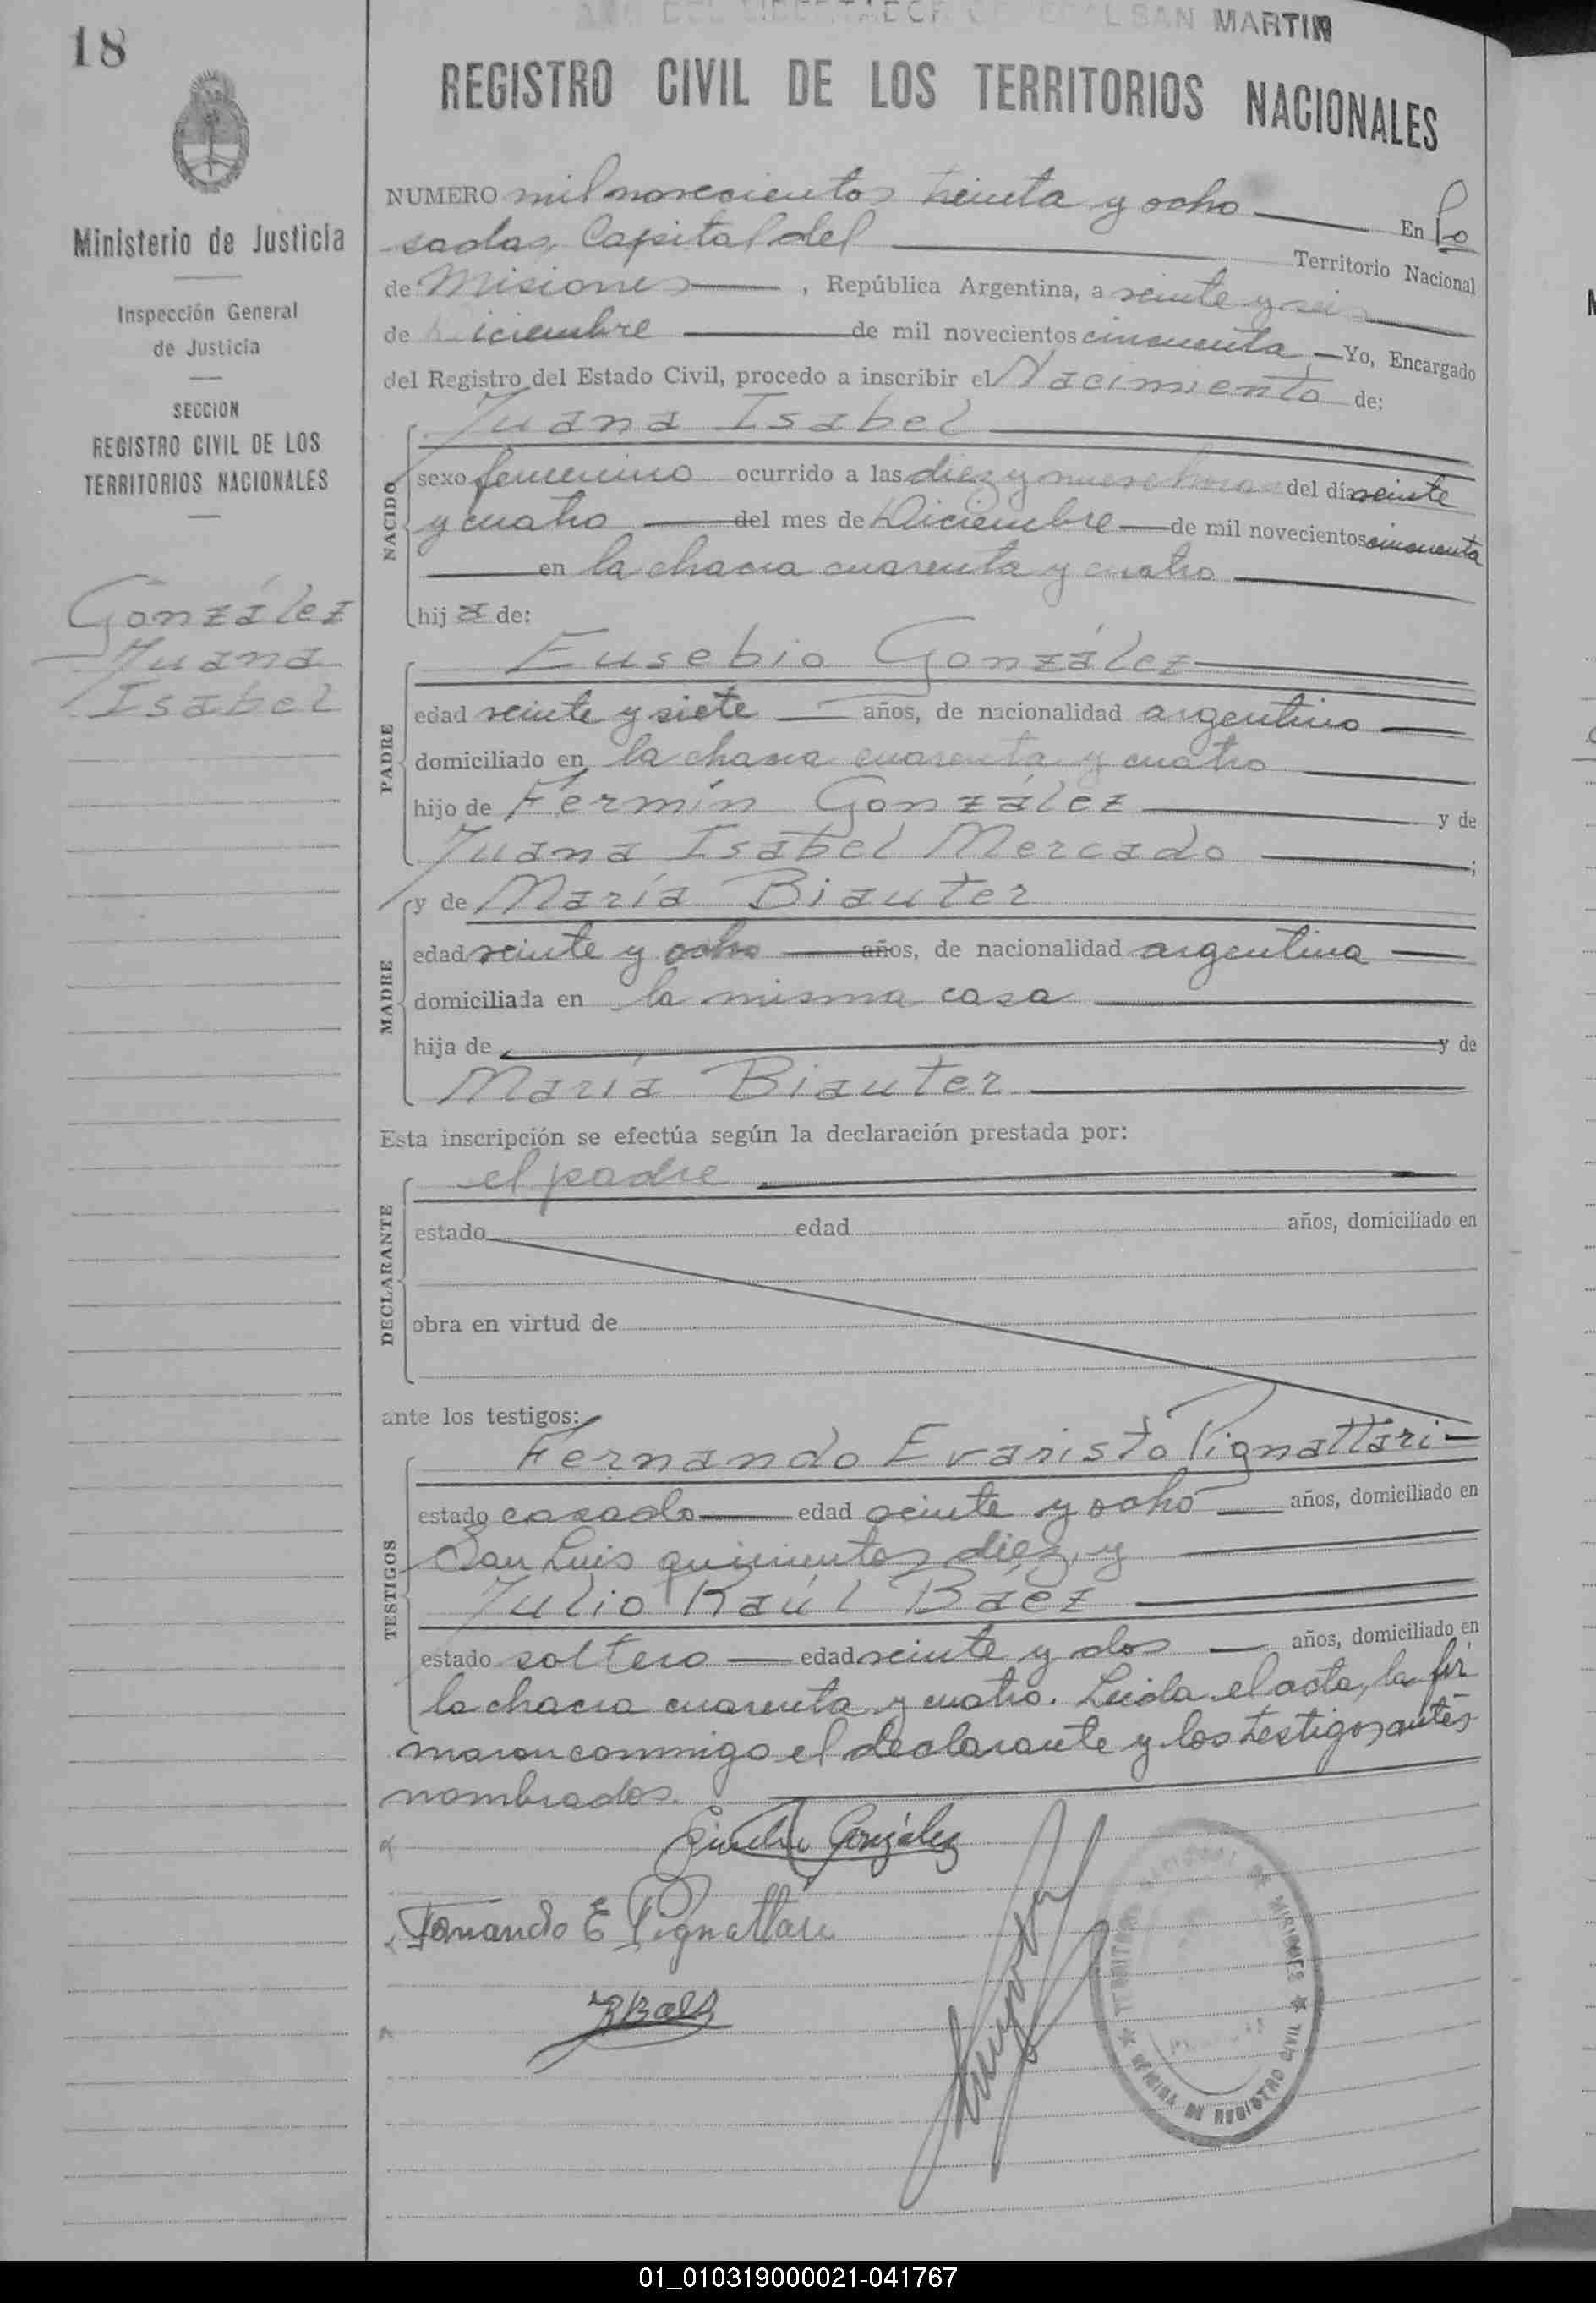 18
AÑO DEL LIBERTADOR GENERAL SAN MARTIN
REGISTRO CIVIL DE LOS TERRITORIOS NACIONALES
Ministerio de Justicia
Inspección General
de Justicia
SECCION
REGISTRO CIVIL DE LOS
TERRITORIOS NACIONALES
González
Juana
Isabel
NUMERO mil novecientos treinta y ocho En Po
sadas, Capital del Territorio Nacional
de Misiones, República Argentina, a veinte y seis
de Diciembre de mil novecientos cincuenta Yo, Encargado
del Registro del Estado Civil, procedo a inscribir el Nacimiento de:
NACIDO
Juana Isabel
sexo femenino ocurrido a las diez y nueve horas del día veinte
y cuatro del mes de Diciembre de mil novecientos cincuenta
en la chacra cuarenta y cuatro
hija de:
PADRE
Eusebio González
edad veinte y siete años, de nacionalidad argentino
domiciliado en la chacra cuarenta y cuatro
hijo de Fermín González y de
Juana Isabel Mercado;
MADRE
y de María Biauter
edad veinte y ocho años, de nacionalidad argentina
domiciliada en la misma casa
hija de y de
María Biauter
Esta inscripción se efectúa según la declaración prestada por:
DECLARANTE
el padre
estado edad años, domiciliado en
obra en virtud de
ante los testigos:
TESTIGOS
Fernando Evaristo Pignattari
estado casado edad veinte y ocho años, domiciliado en
San Luis quinientos diez, y
Julio Raúl Báez
estado soltero edad veinte y dos años, domiciliado en
la chacra cuarenta y cuatro. Leida el acta, la fir
maron conmigo el declarante y los testigos antes
nombrados.
González
Fernando E Pignattari
RBaez
TERRITORIO NACIONAL DE MISIONES
OFICINA DE REGISTRO CIVIL
01_010319000021-041767